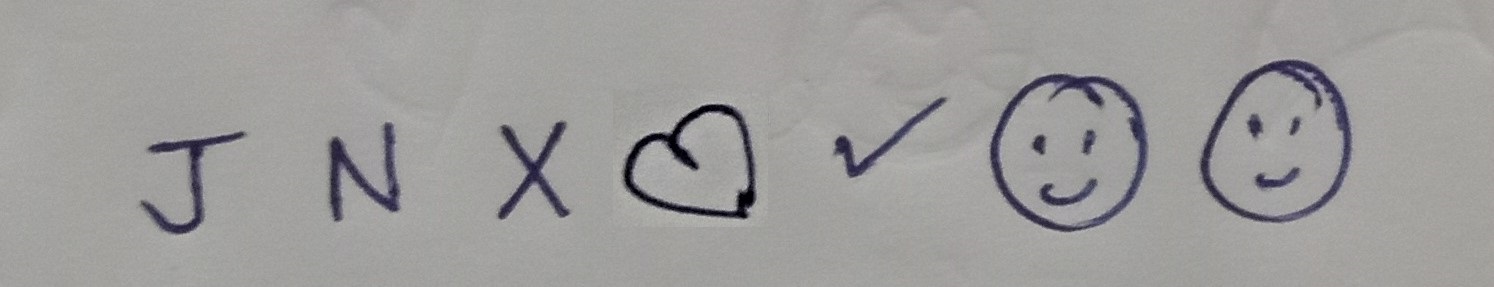 J N X ♡ ✓ ☺ ☺